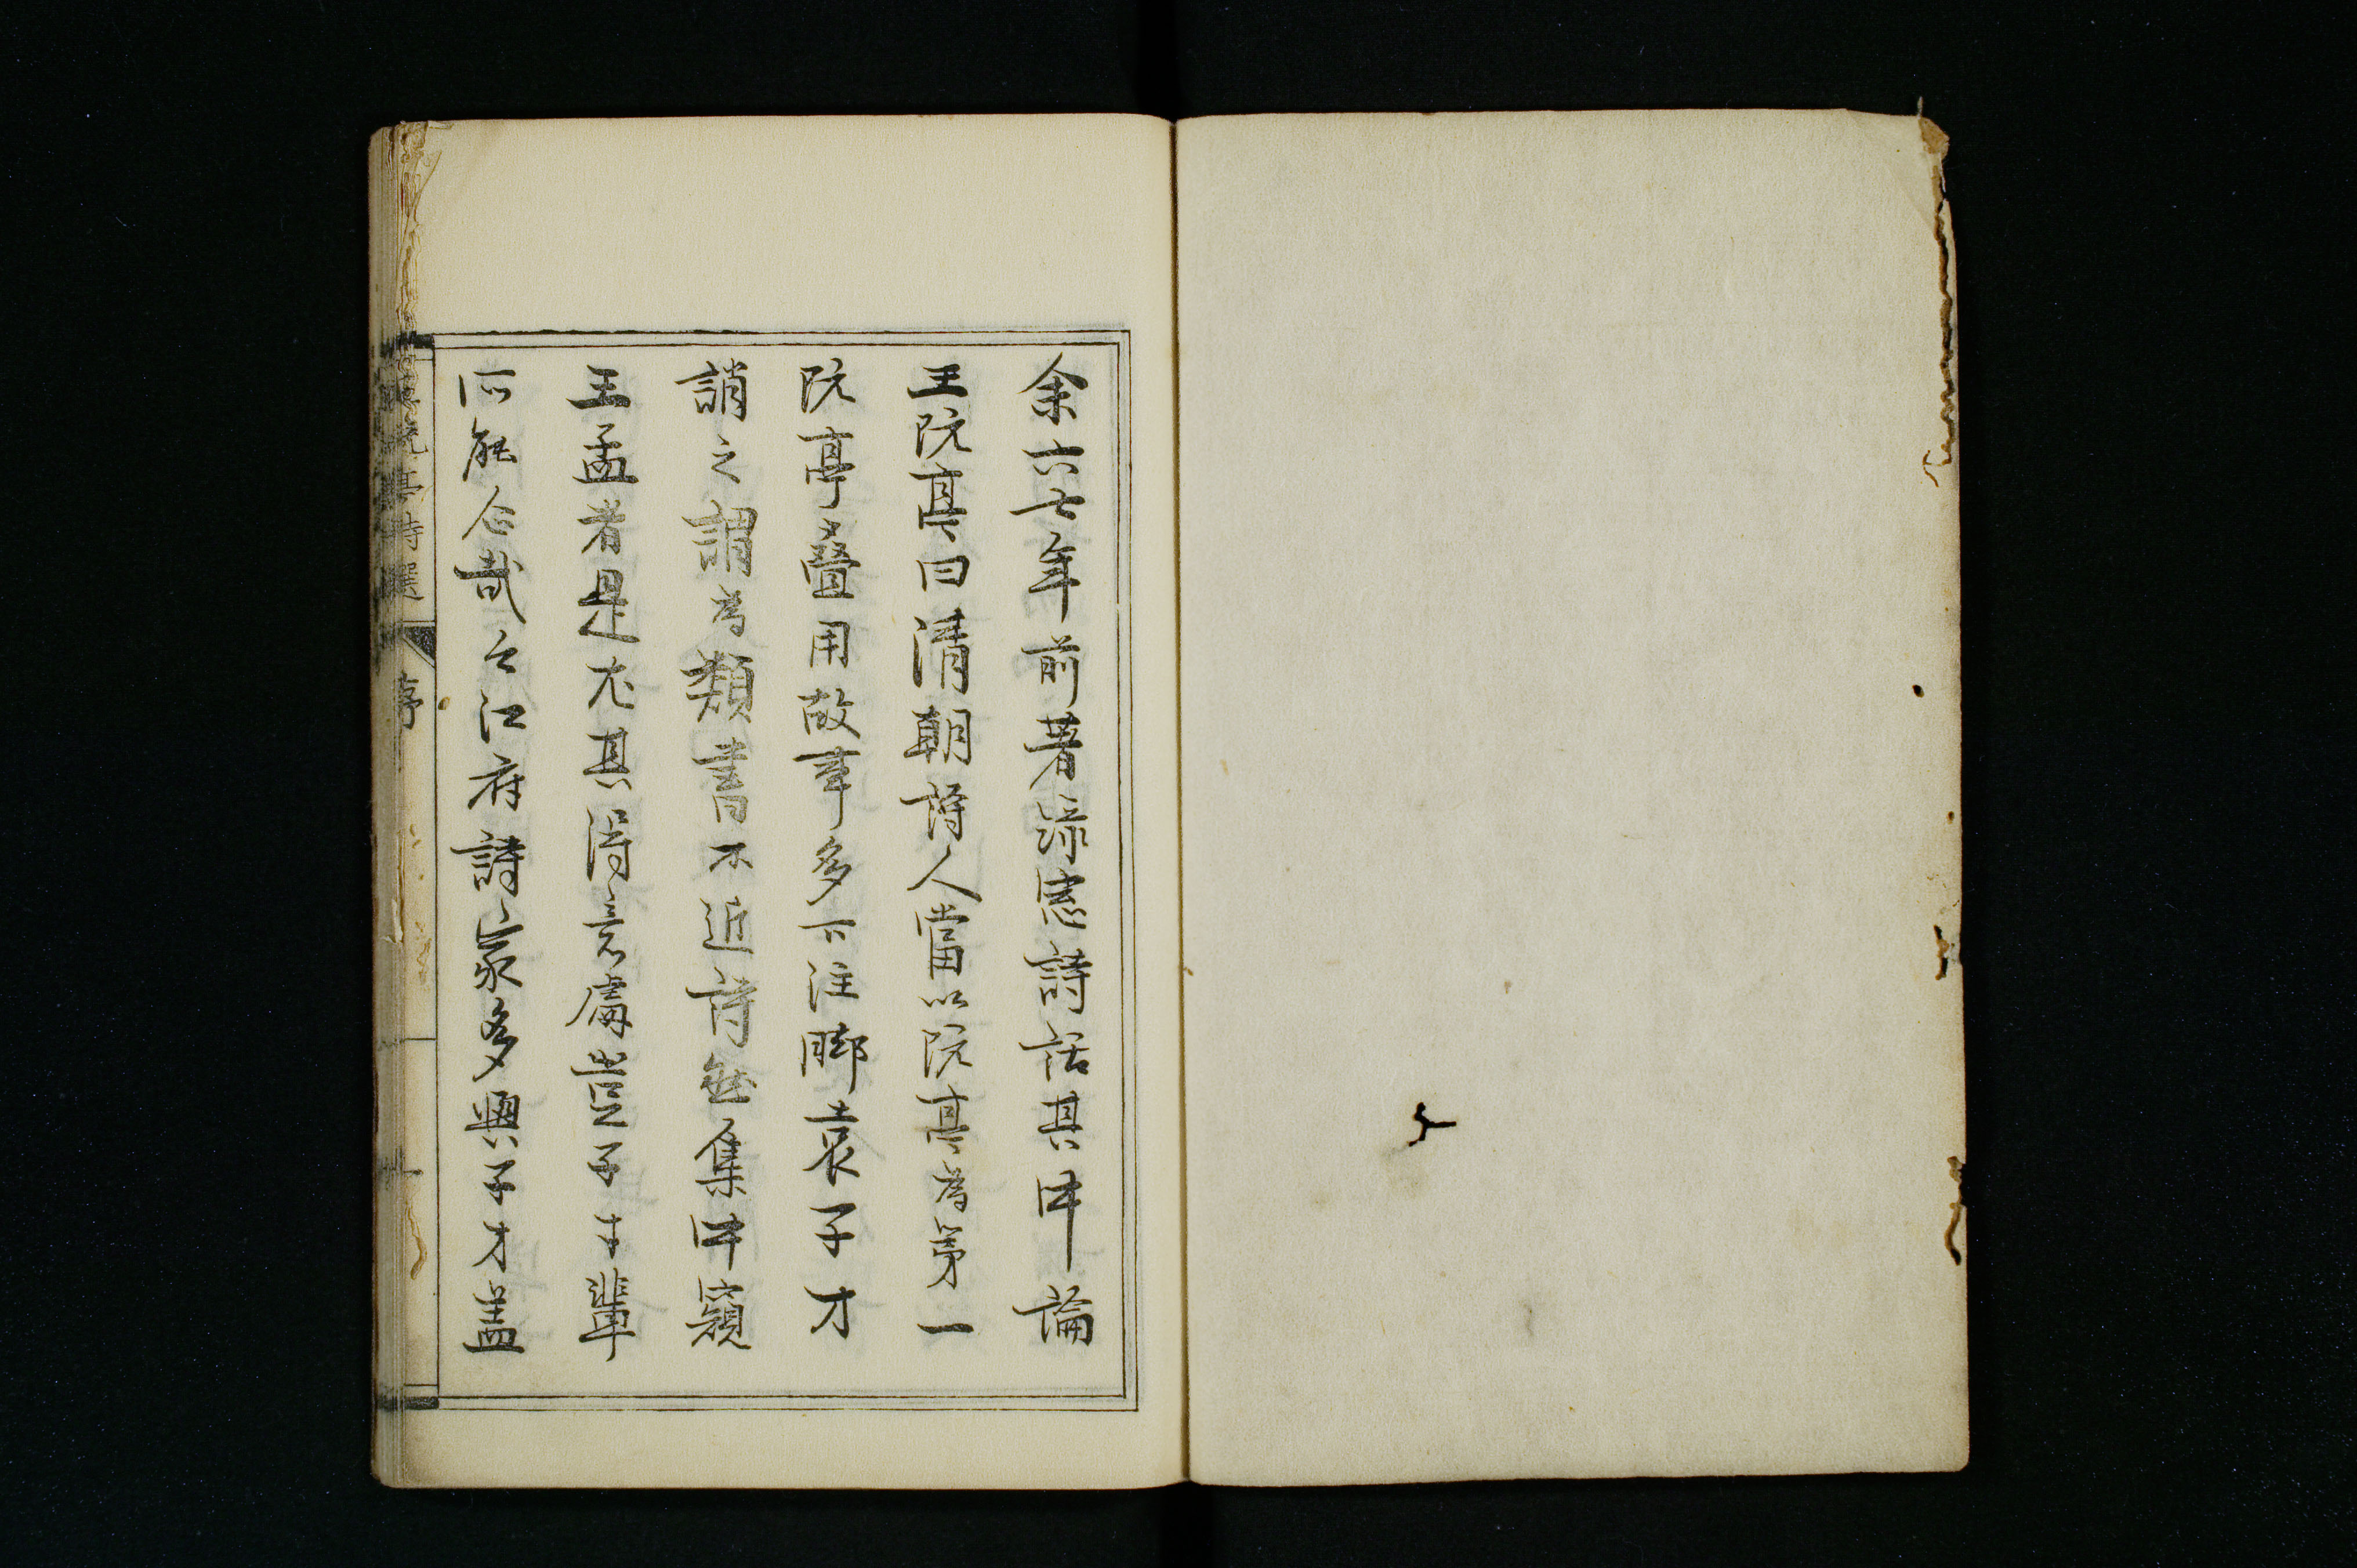 余六七年前著綠窓詩話其中論
王阮亭曰清朝詩人當以阮亭為第一
阮亭疊用故事多可注脚袁子才
誚之謂為類書不近詩然集中類
王孟者是尤其得意處豈子才輩
所能企哉之江府詩家多與子才盖
王阮亭詩選
序